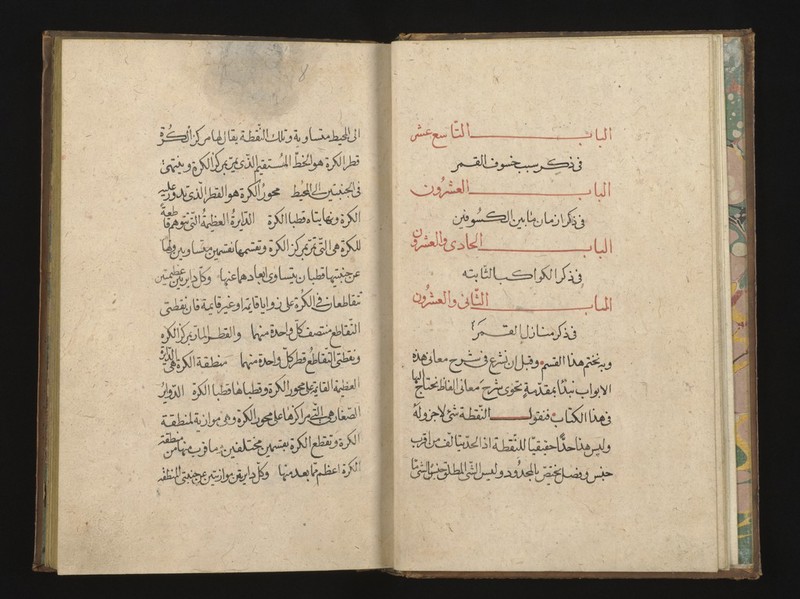 الباب التاسع عشر
في ذكر سبب خسوف القمر
الباب العشرون
في ذكر ازمان مابين الكسوفين
الباب الحادي والعشرون
في ذكر الكواكب الثابته
الباب الثاني والعشرون
في ذكر منازل القمر
وبه نختم هذا القسم وقبل ان نشرع في شرح معاني هذه
الابواب نبدأ بمقدمة تحوى شرح معاني الفاظ نحتاج اليها
في هذا الكتاب فنقول النقطة شئ لا جزء له
وليس هذا حدا حقيقيا للنقطة اذ الحد يتالف من اقرب
جنس وفصل يختص بالمحدود وليس الشئ المطلق جنس
الى المحيط متساوية وتلك النقطة يقال لها مركز الكرة
قطر الكرة هو الخط المستقيم الذي يمر بمركز الكرة وينتهى
في الجنبتين الى المحيط محور الكرة هو القطر الذي تدور عليه
الكرة ونهايتاه قطبا الكرة الدايرة العظيمة التي تتوهم قاطعة
للكرة هي التي تمر بمركز الكرة وتقسمها بقسمين متساويين ولها
عن جنبتيها قطبان يتساوى ابعادهما عنها وكل دايرتين عظيمتين
تتقاطعان في الكرة على زوايا قايمة او غير قايمة فان نقطتي
التقاطع منتصف كل واحدة منهما والقطر المار بمركز الكرة
وبنقطتي التقاطع قطر كل واحدة منهما منطقة الكرة هي الدايرة
العظيمة القايمة على محور الكرة وقطباها قطبا الكرة الدواير
الصغار هي التي مراكزها على محور الكرة وهي موازية لمنطقة
الكرة وتقطع الكرة بقسمين مختلفين وما قرب منها من منطقة
الكرة اعظم مما بعد منها وكل دايرتين موازيتين عن جنبتي المنطقة